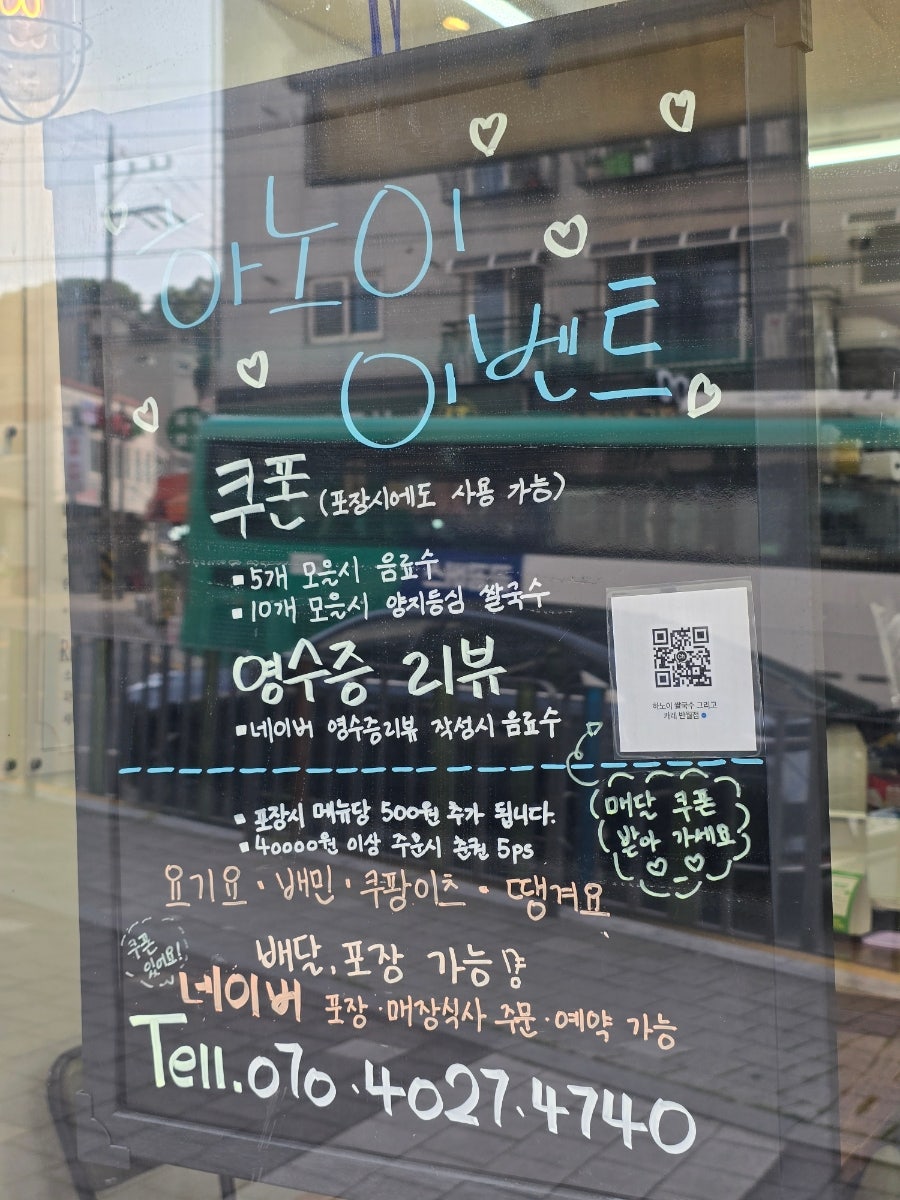 하노이
이벤트
쿠폰 (포장시에도 사용 가능)
▪ 5개 모을시 음료수
▪ 10개 모을시 양지등심 쌀국수
영수증 리뷰
▪ 네이버 영수증리뷰 작성시 음료수
하노이 쌀국수 그리고
카페 반월점
매달 쿠폰
받아 가세요
▪ 포장시 메뉴당 500원 추가 됩니다.
▪ 40000원 이상 주문시 춘권 5ps
요기요 · 배민 · 쿠팡이츠 · 땡겨요
쿠폰
있어요!
배달, 포장 가능
네이버 포장 · 매장식사 주문 · 예약 가능
Tell. 070 . 4027 . 4740